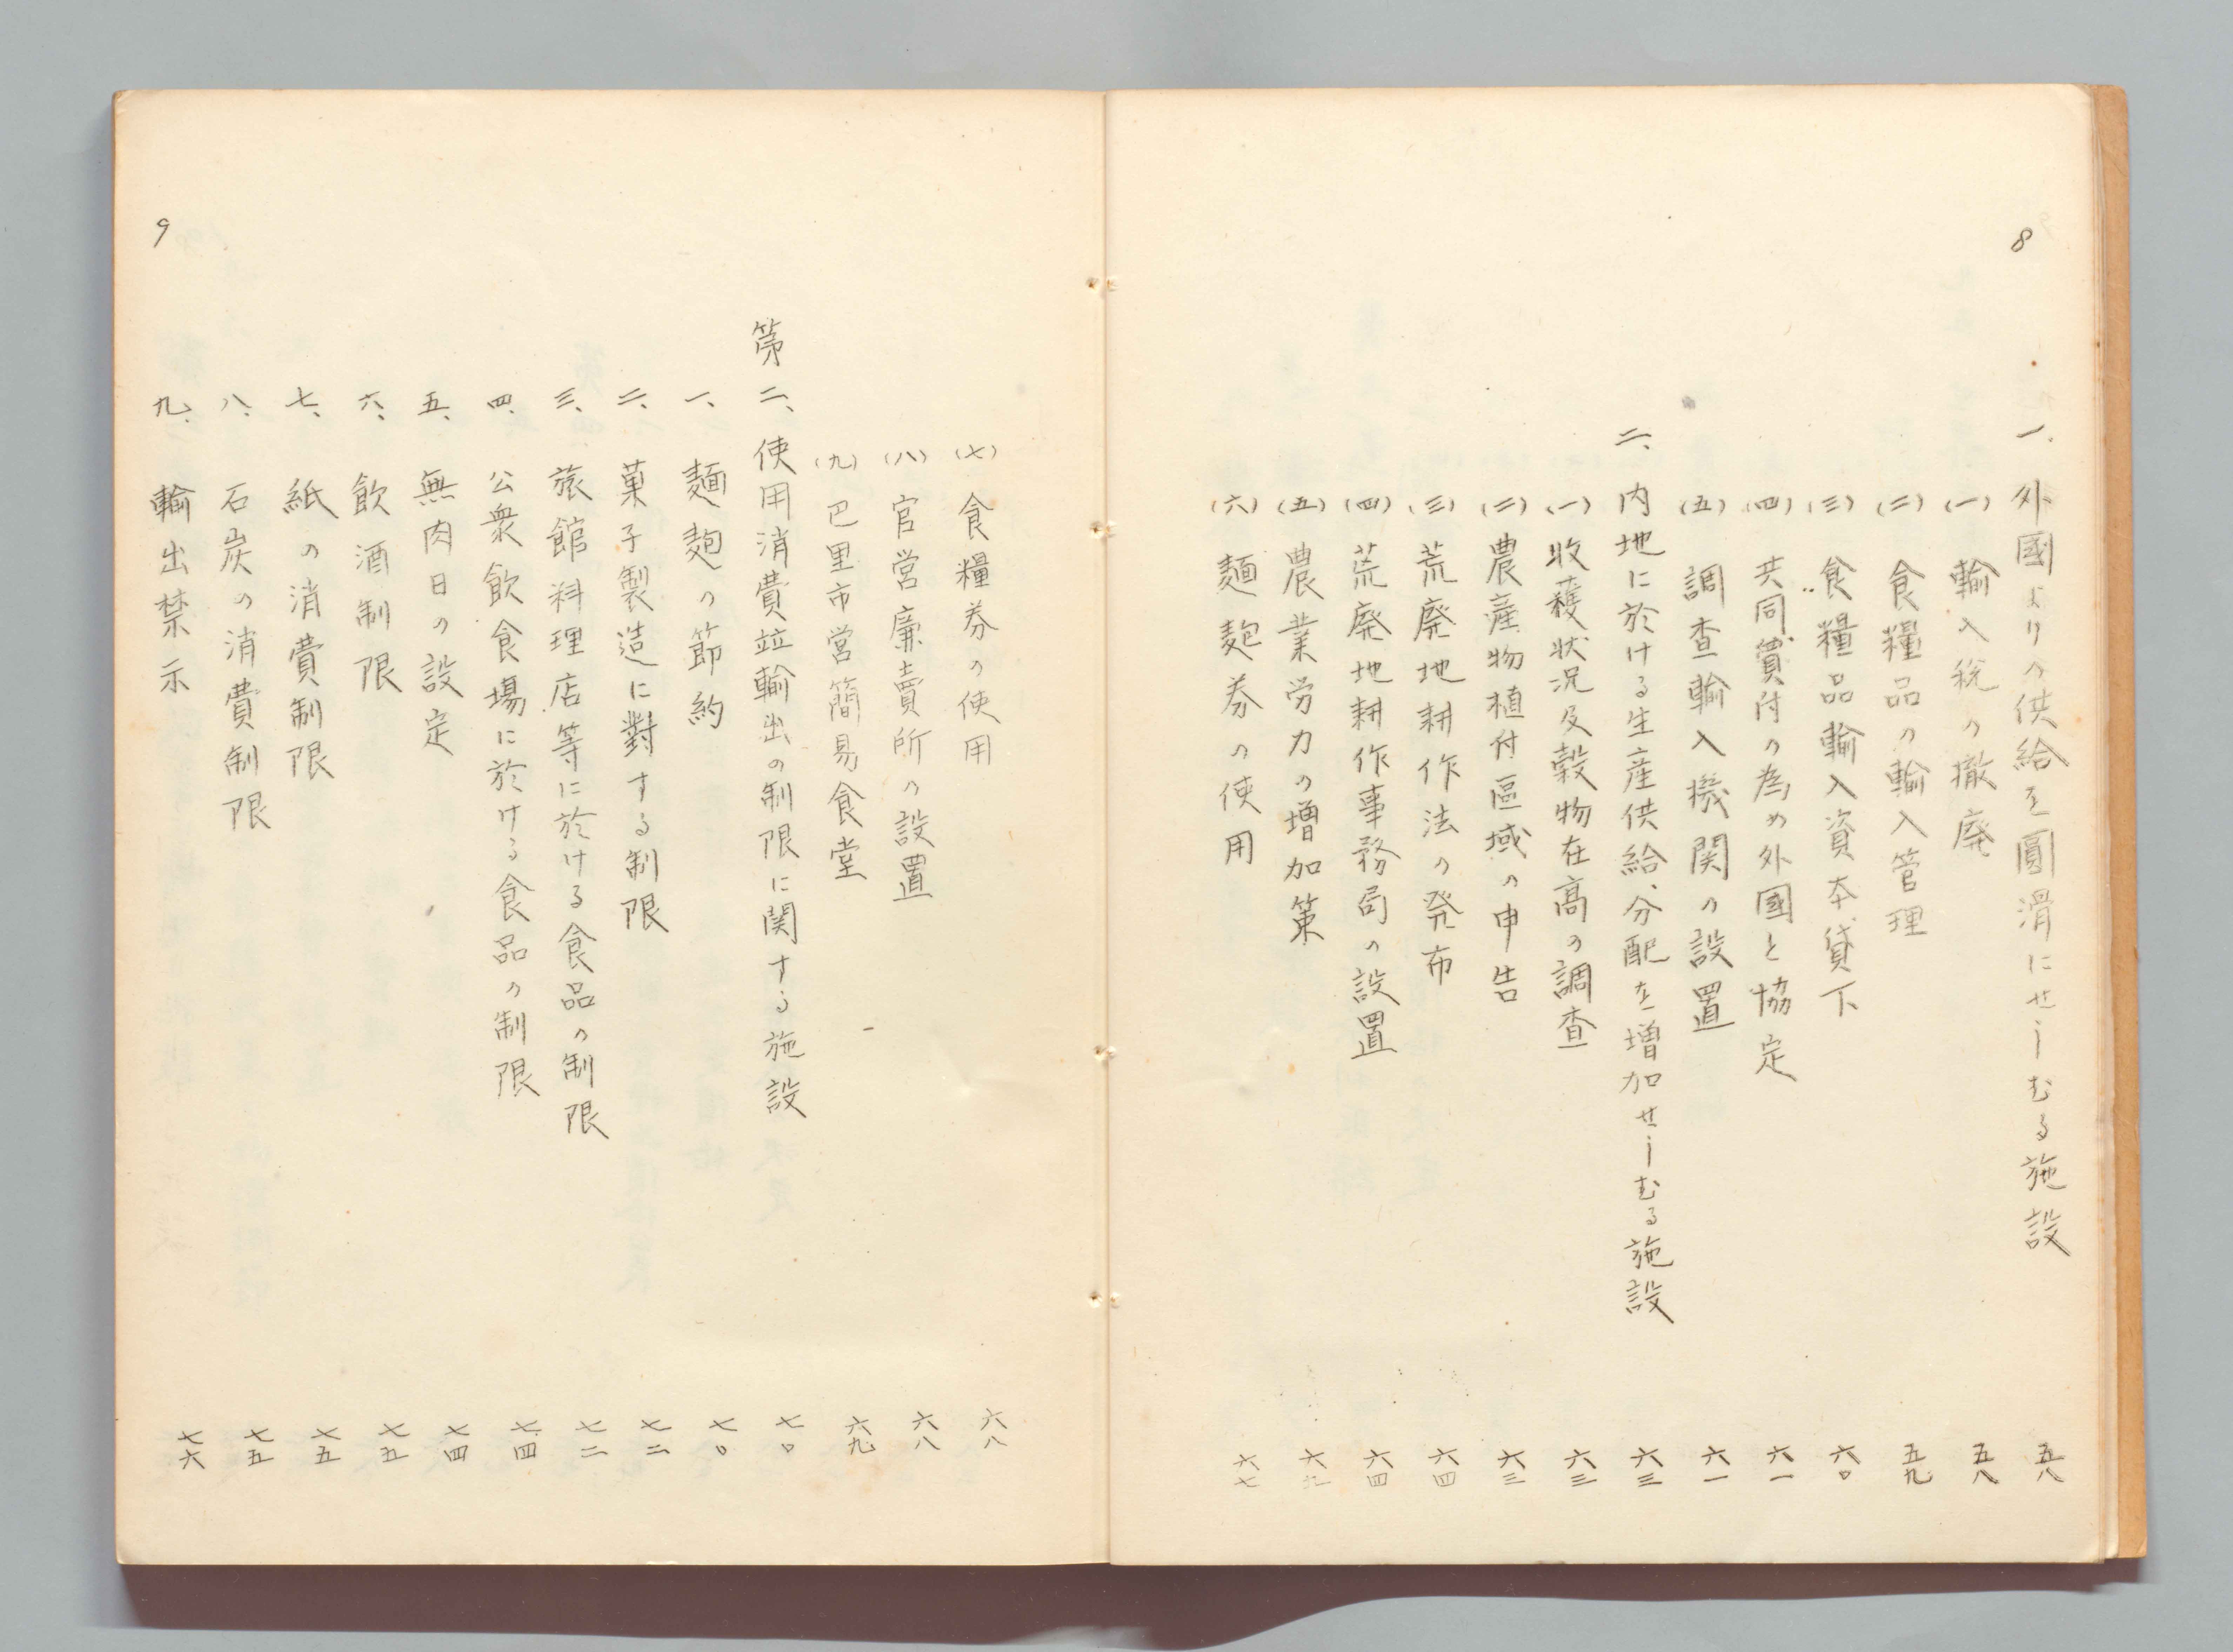 8
一、外國よりの供給を圓滑にせしむる施設 五八
(一) 輸入税の撤廃 五八
(二) 食糧品の輸入管理 五九
(三) 食糧品輸入資本貸下 六〇
(四) 共同買付の為め外國と協定 六一
(五) 調査輸入機関の設置 六一
二、内地に於ける生産供給、分配を増加せしむる施設 六三
(一) 收穫状況及穀物在高の調査 六三
(二) 農産物植付區域の申告 六三
(三) 荒廃地耕作法の発布 六四
(四) 荒廃地耕作事務局の設置 六四
(五) 農業労力の増加策 六
(六) 麺麭券の使用 六七
(七) 食糧券の使用 六八
(八) 官営廉賣所の設置 六八
(九) 巴里市営簡易食堂 六九
第二、使用消費並輸出の制限に関する施設 七〇
一、麺麭の節約 七〇
二、菓子製造に對する制限 七二
三、旅館料理店等に於ける食品の制限 七二
四、公衆飲食場に於ける食品の制限 七四
五、無肉日の設定 七四
六、飲酒制限 七五
七、紙の消費制限 七五
八、石炭の消費制限 七五
九、輸出禁示 七六
9